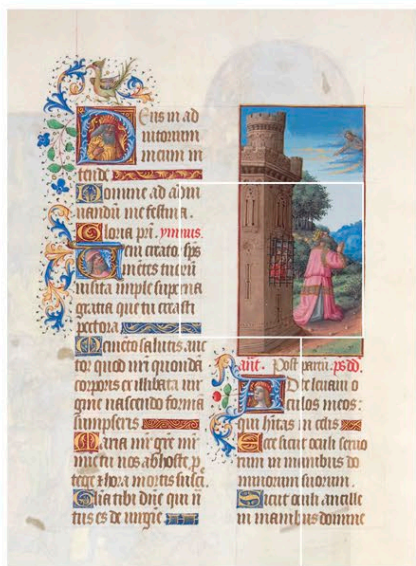 Deus in ad
iutorium
meum in
tende
Domine ad adiu
uandũ me festina.
Gloria pri. ymnus.
Veni creator sps
mẽtes tuorũ
uisita imple superna
gratia que tu creasti
pectora
Memẽto salutis auc
tor quod nri quonda
corporis ex illibata uir
gine nascendo formã
sumpseris
Maria mr grẽ mr
mie tu nos ab hoste p
tege & hora mortis susci.
Gloria tibi dñe qui n
tus es de uirgie
añt. Post partũ. ps. dd.
Ad te leuaui o
culos meos:
qui hitas in celis
Ecce sicut oculi seruo
rum in manibus do
minorum suorum.
Sicut oculi ancille
in manibus domine